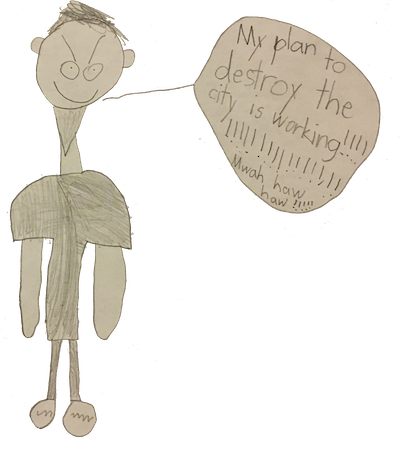 My plan to
destroy the
city is working!!!!
!!!!!!!!!!!!!!
Mwah haw
haw !!!!!